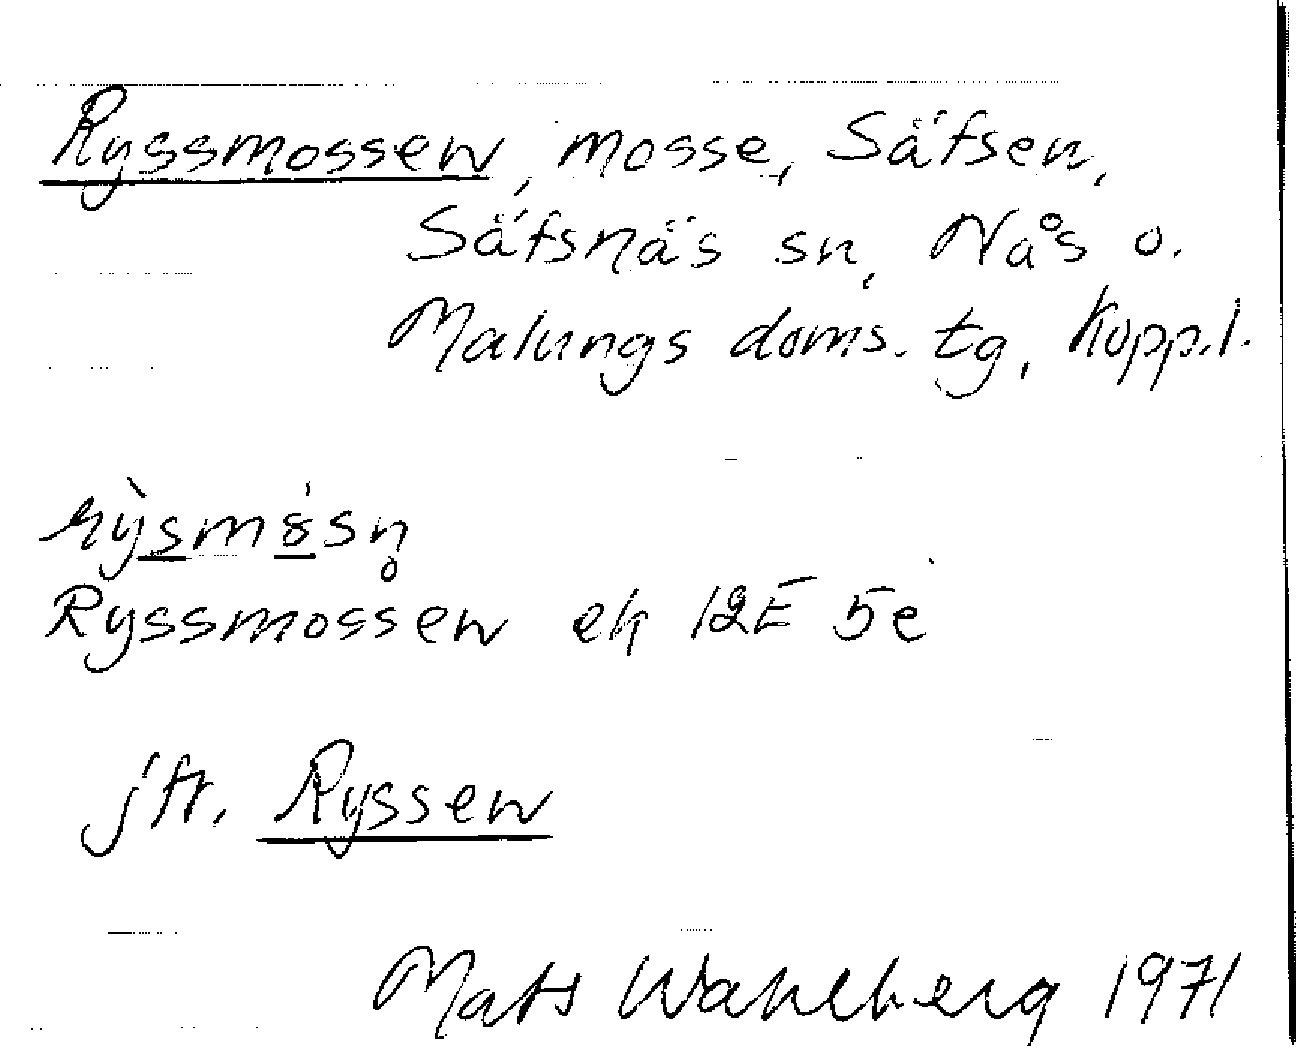 Ryssmossen, mosse, Säfsen,
Säfsnäs sn, Nås o.
Malungs doms. tg, Kopp.l.
rỳsm8́sn̥
Ryssmossen ek 12E 5e
jfr. Ryssen
Mats Wahlberg 1971